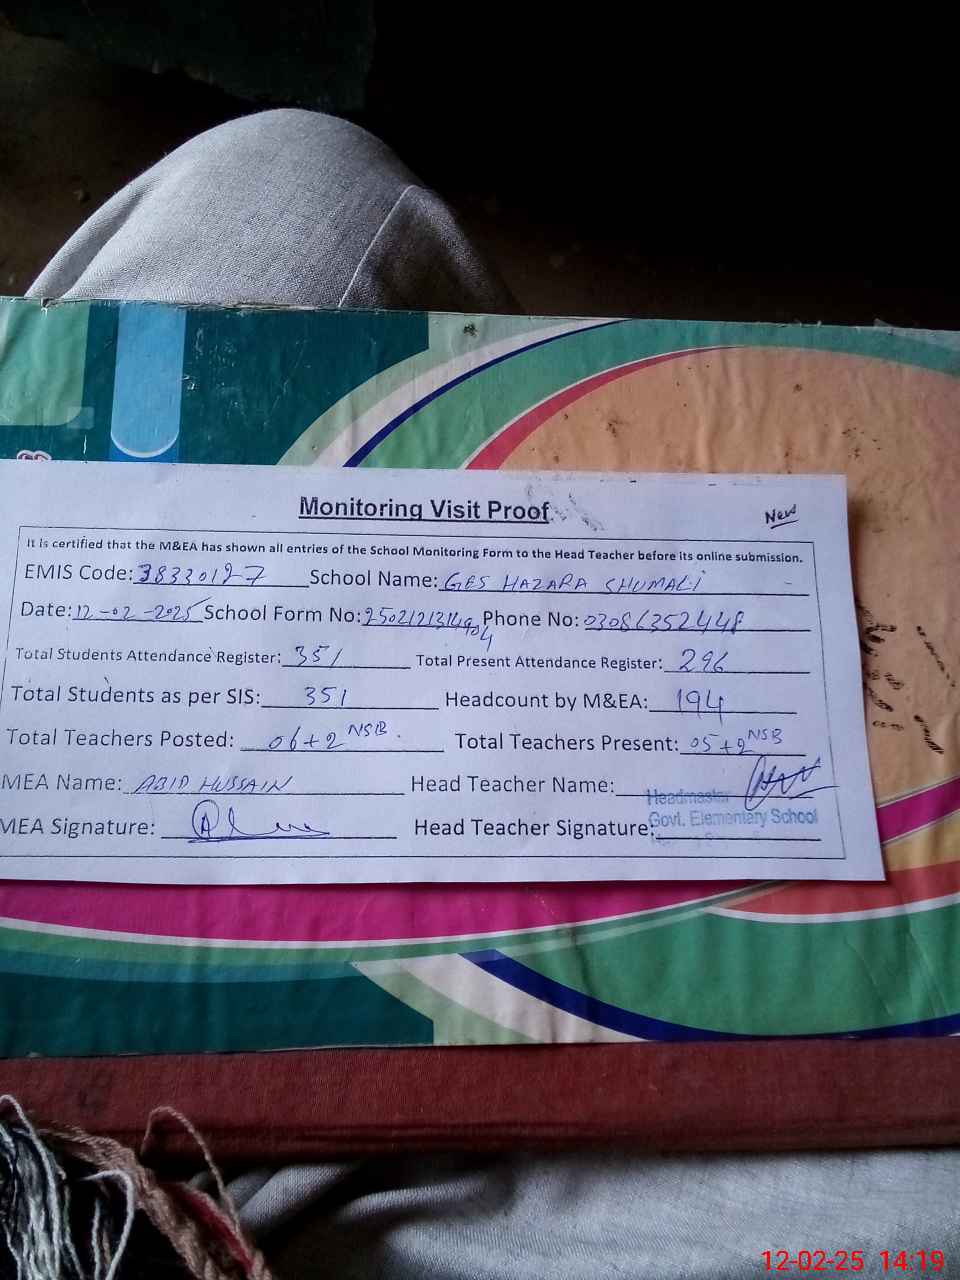 Monitoring Visit Proof
New
It is certified that the M&EA has shown all entries of the School Monitoring Form to the Head Teacher before its online submission.
EMIS Code: 38330197 School Name: GES HAZARA SHUMALI
Date: 12-02-2025 School Form No: Phone No: 03086352448
Total Students Attendance Register: 351 Total Present Attendance Register: 296
Total Students as per SIS: 351 Headcount by M&EA: 194
Total Teachers Posted: 06+2 NSB. Total Teachers Present: 05+2 NSB
MEA Name: ABID HUSSAIN Head Teacher Name:
Headmaster
MEA Signature: Head Teacher Signature: Govt. Elementary School
12-02-25 14:19